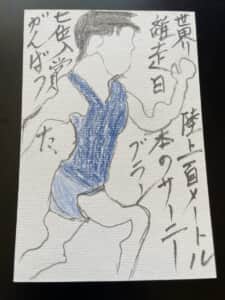 陸上百メートル
世界
離走日
本のサーニー
ブラン
七位入賞
がんばった、